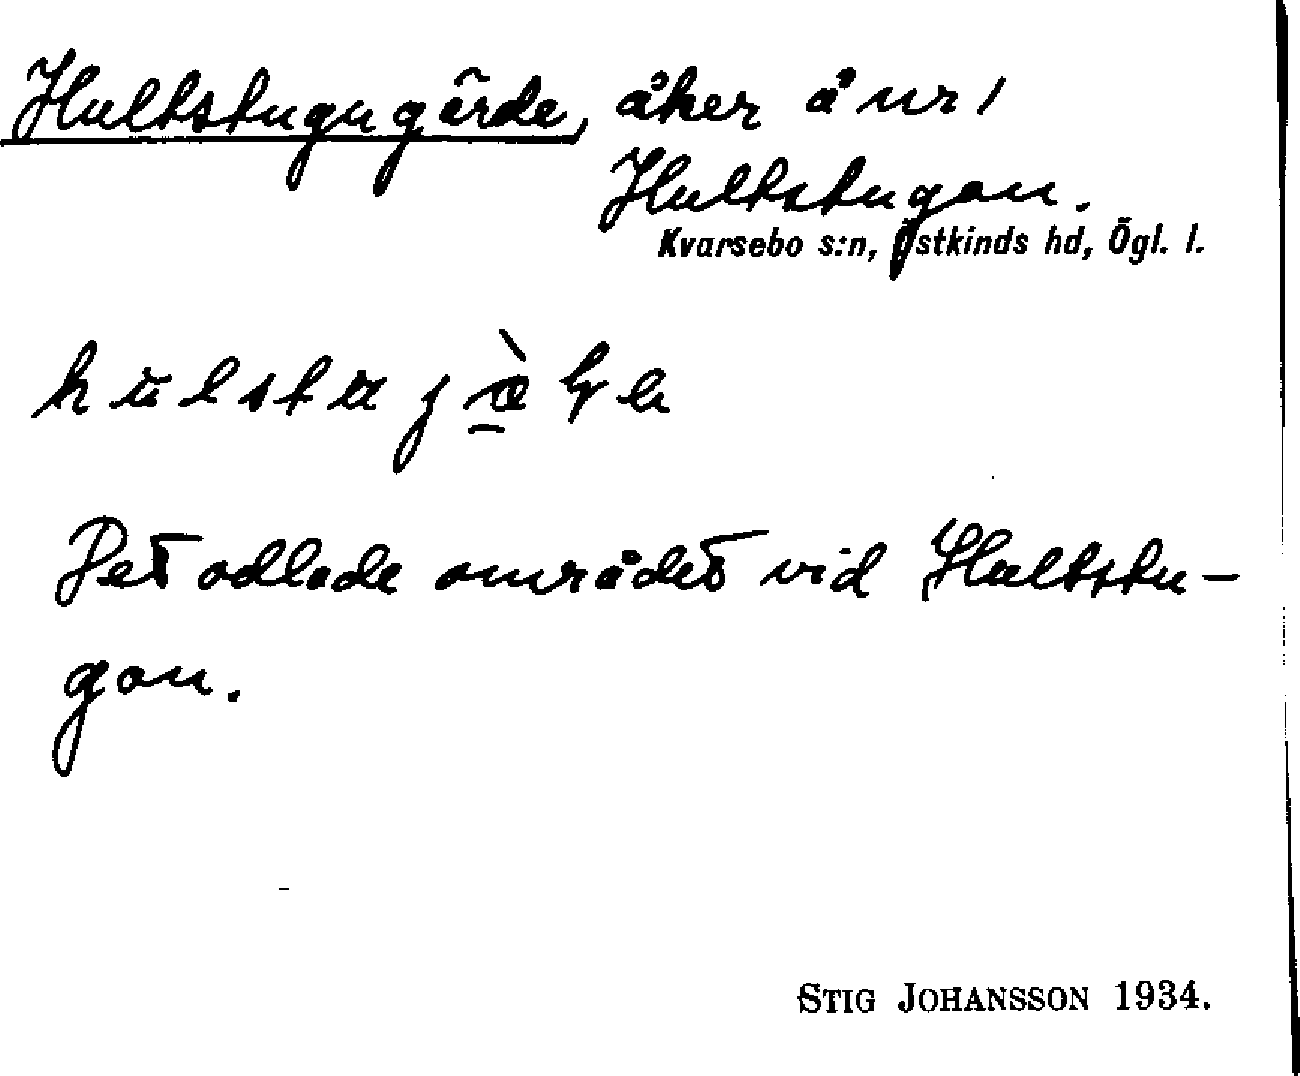 Hultstugugärde, åker å nr 1
Hultstugan.
Kvarsebo s:n, Östkinds hd, Ögl. l.
Det odlade området vid Hultstu-
gan.
STIG JOHANSSON 1934.